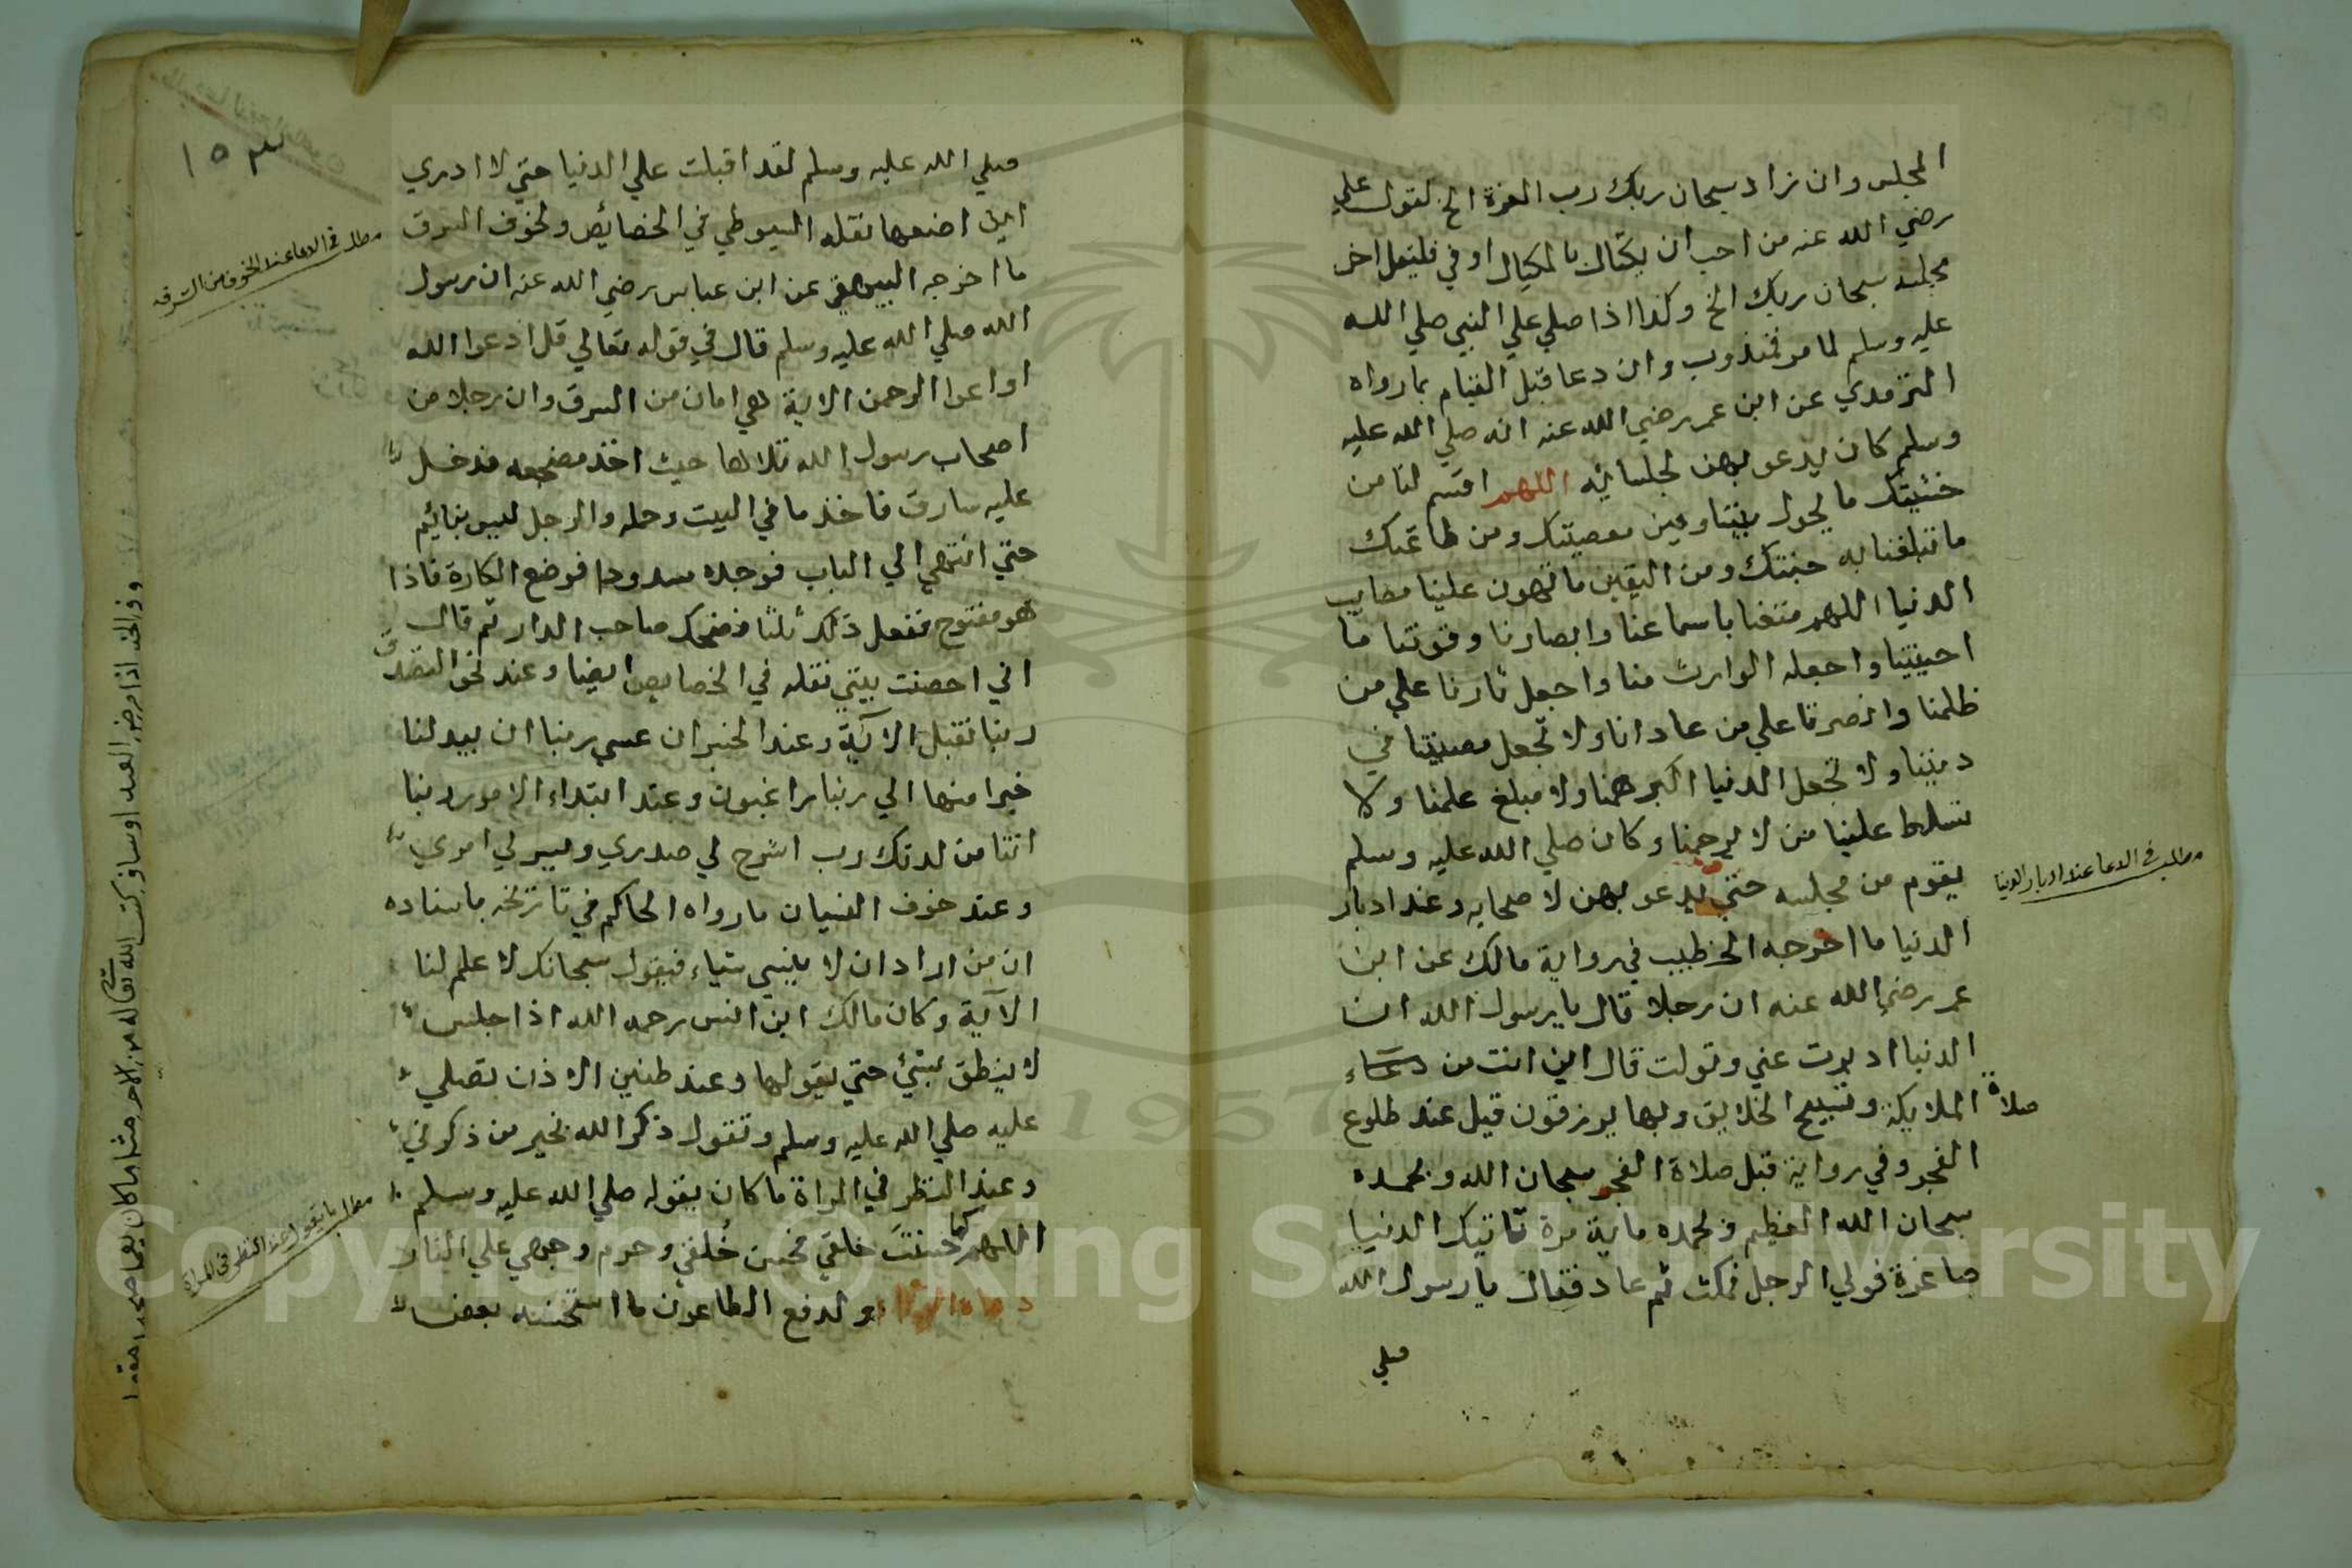 المجلس وان زاد سبحان ربك رب العزة الخ لقول علي
رضي الله عنه من احب ان يكتال بالمكيال الاوفي فليقل اخر
مجلسه سبحان ربك الخ وكذا اذا صلي علي النبي صلي الله
عليه وسلم لما مر فمندوب وان دعا قبل القيام بما رواه
الترمذي عن ابن عمر رضي الله عنه انه صلي الله عليه
وسلم كان يدعو بهن لجلسائه اللهم اقسم لنا من
خشيتك ما يحول بيننا وبين معصيتك ومن طاعتك
ما تبلغنا به جنتك ومن اليقين ما تهون علينا مصايب
الدنيا اللهم متعنا باسماعنا وابصارنا وقوتنا ما
احييتنا واجعله الوارث منا واجعل ثارنا علي من
ظلمنا وانصرنا علي من عادانا ولا تجعل مصيبتنا في
ديننا ولا تجعل الدنيا اكبر همنا ولا مبلغ علمنا ولا
تسلط علينا من لا يرحمنا وكان صلي الله عليه وسلم
يقوم من مجلسه حتي يدعو بهن لاصحابه وعند ادبار
الدنيا ما اخرجه الخطيب في رواية مالك عن ابن
عمر رضي الله عنه ان رجلا قال يا رسول الله ان
الدنيا ادبرت عني وتولت قال اين انت من دعاء
صلاة الملايكة وتسبيح الخلايق وبها يرزقون قيل عند طلوع
الفجر وفي رواية قبل صلاة الفجر سبحان الله وبحمده
سبحان الله العظيم وبحمده ماية مرة تاتيك الدنيا
صاغرة فولي الرجل فمكث ثم عاد فقال يا رسول الله
صلي
مطلب في الدعا عند ادبار الدنيا
١٥٣
صلي الله عليه وسلم لقد اقبلت علي الدنيا حتي لا ادري
اين اضعها نقله السيوطي في الخصائص ولخوف السرق
ما اخرجه البيهقي عن ابن عباس رضي الله عنه ان رسول
الله صلي الله عليه وسلم قال في قوله تعالي قل ادعوا الله
اوادعوا الرحمن الاية هي امان من السرق وان رجلا من
اصحاب رسول الله تلاها حيث اخذ مضجعه فدخل
عليه سارق فاخذ ما في البيت وحمله والرجل ليس بنائم
حتي انتهي الي الباب فوجده مسدودا فوضع الكارة فاذا
هو مفتوح ففعل ذلك ثلثا فضحك صاحب الدار ثم قال
اني احصنت بيتي نقله في الخصايص ايضا وعند نحو التصدق
ربنا تقبل الاية وعند الخسران عسي ربنا ان يبدلنا
خيرا منها الي ربنا راغبون وعند ابتداء الامور ربنا
اتنا من لدنك رب اشرح لي صدري ويسر لي امري
وعند خوف النسيان ما رواه الحاكم في تاريخه باسناده
ان من اراد ان لا ينسي شياء فيقول سبحانك لا علم لنا
الآية وكان مالك ابن انس رحمه الله اذا جلس
لا ينطق بشئ حتي يقولها وعند طنين الاذن تصلي
عليه صلي الله عليه وسلم وتقول ذكر الله بخير من ذكرني
وعند النظر في المراة ما كان يقوله صلي الله عليه وسلم
اللهم كما حسنت خلقي فحسن خُلقي وحرم وجهي علي النار
ولدفع الطاعون ما استحسنه بعض
مطلب في الدعا عند الخوف من السرقة
مطلب ما يقول عند النظر في المراة
وفي الخبر اذا مرض العبد او سافر كتب الله تعالى له من الاجر مثل ما كان يعمل صحيحا مقيما
Copyright © King Saud University
1957